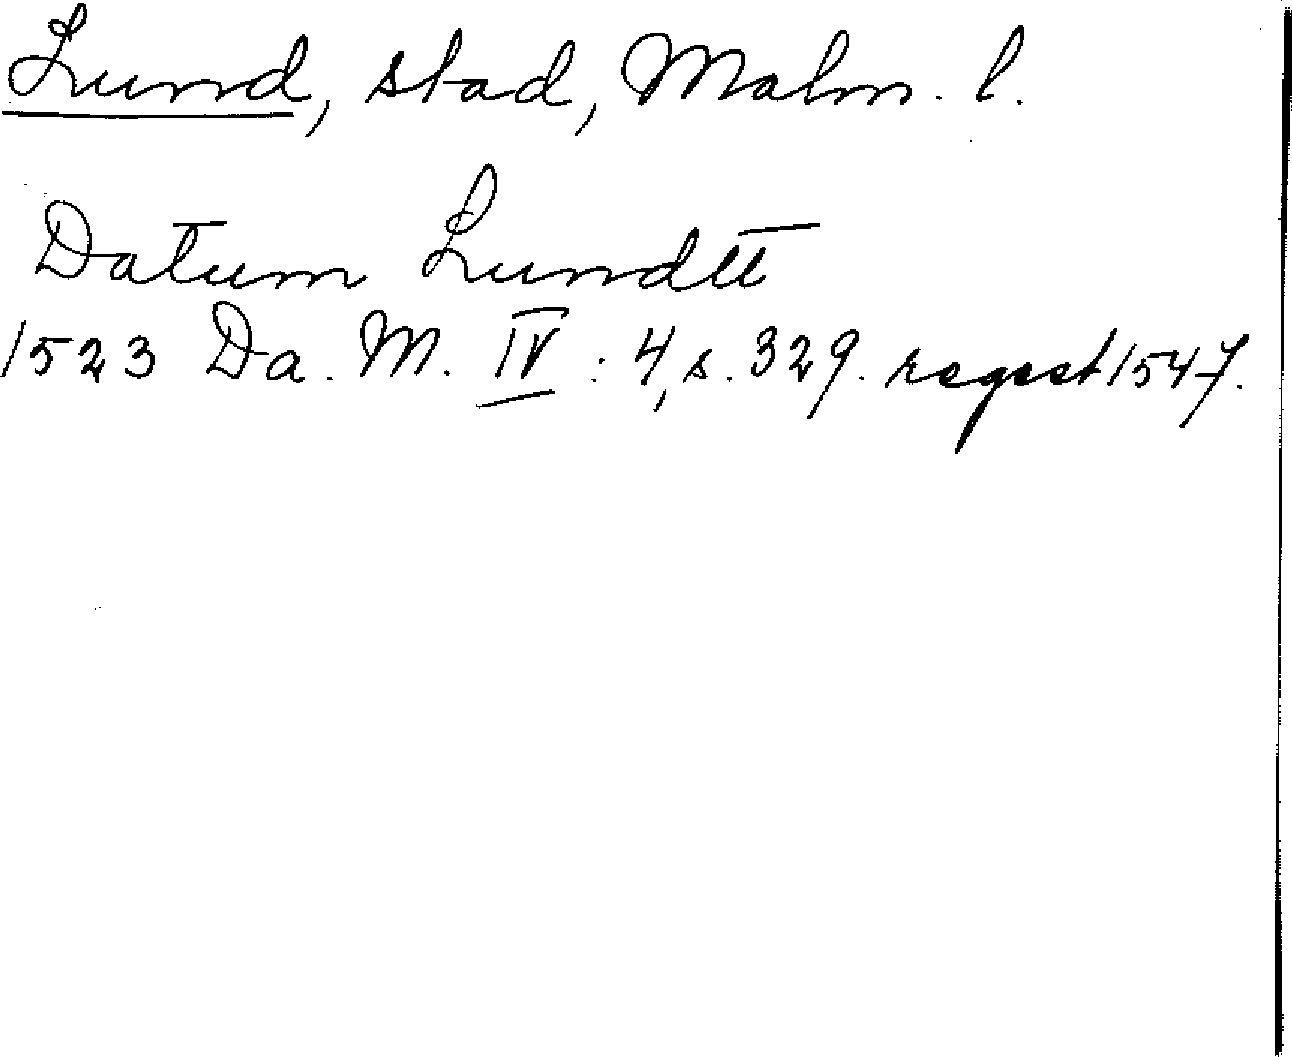 Lund, stad, Malm. l.
Datum Lundtt
1523 Da. M. IV : 4, s. 329. regest 1547.